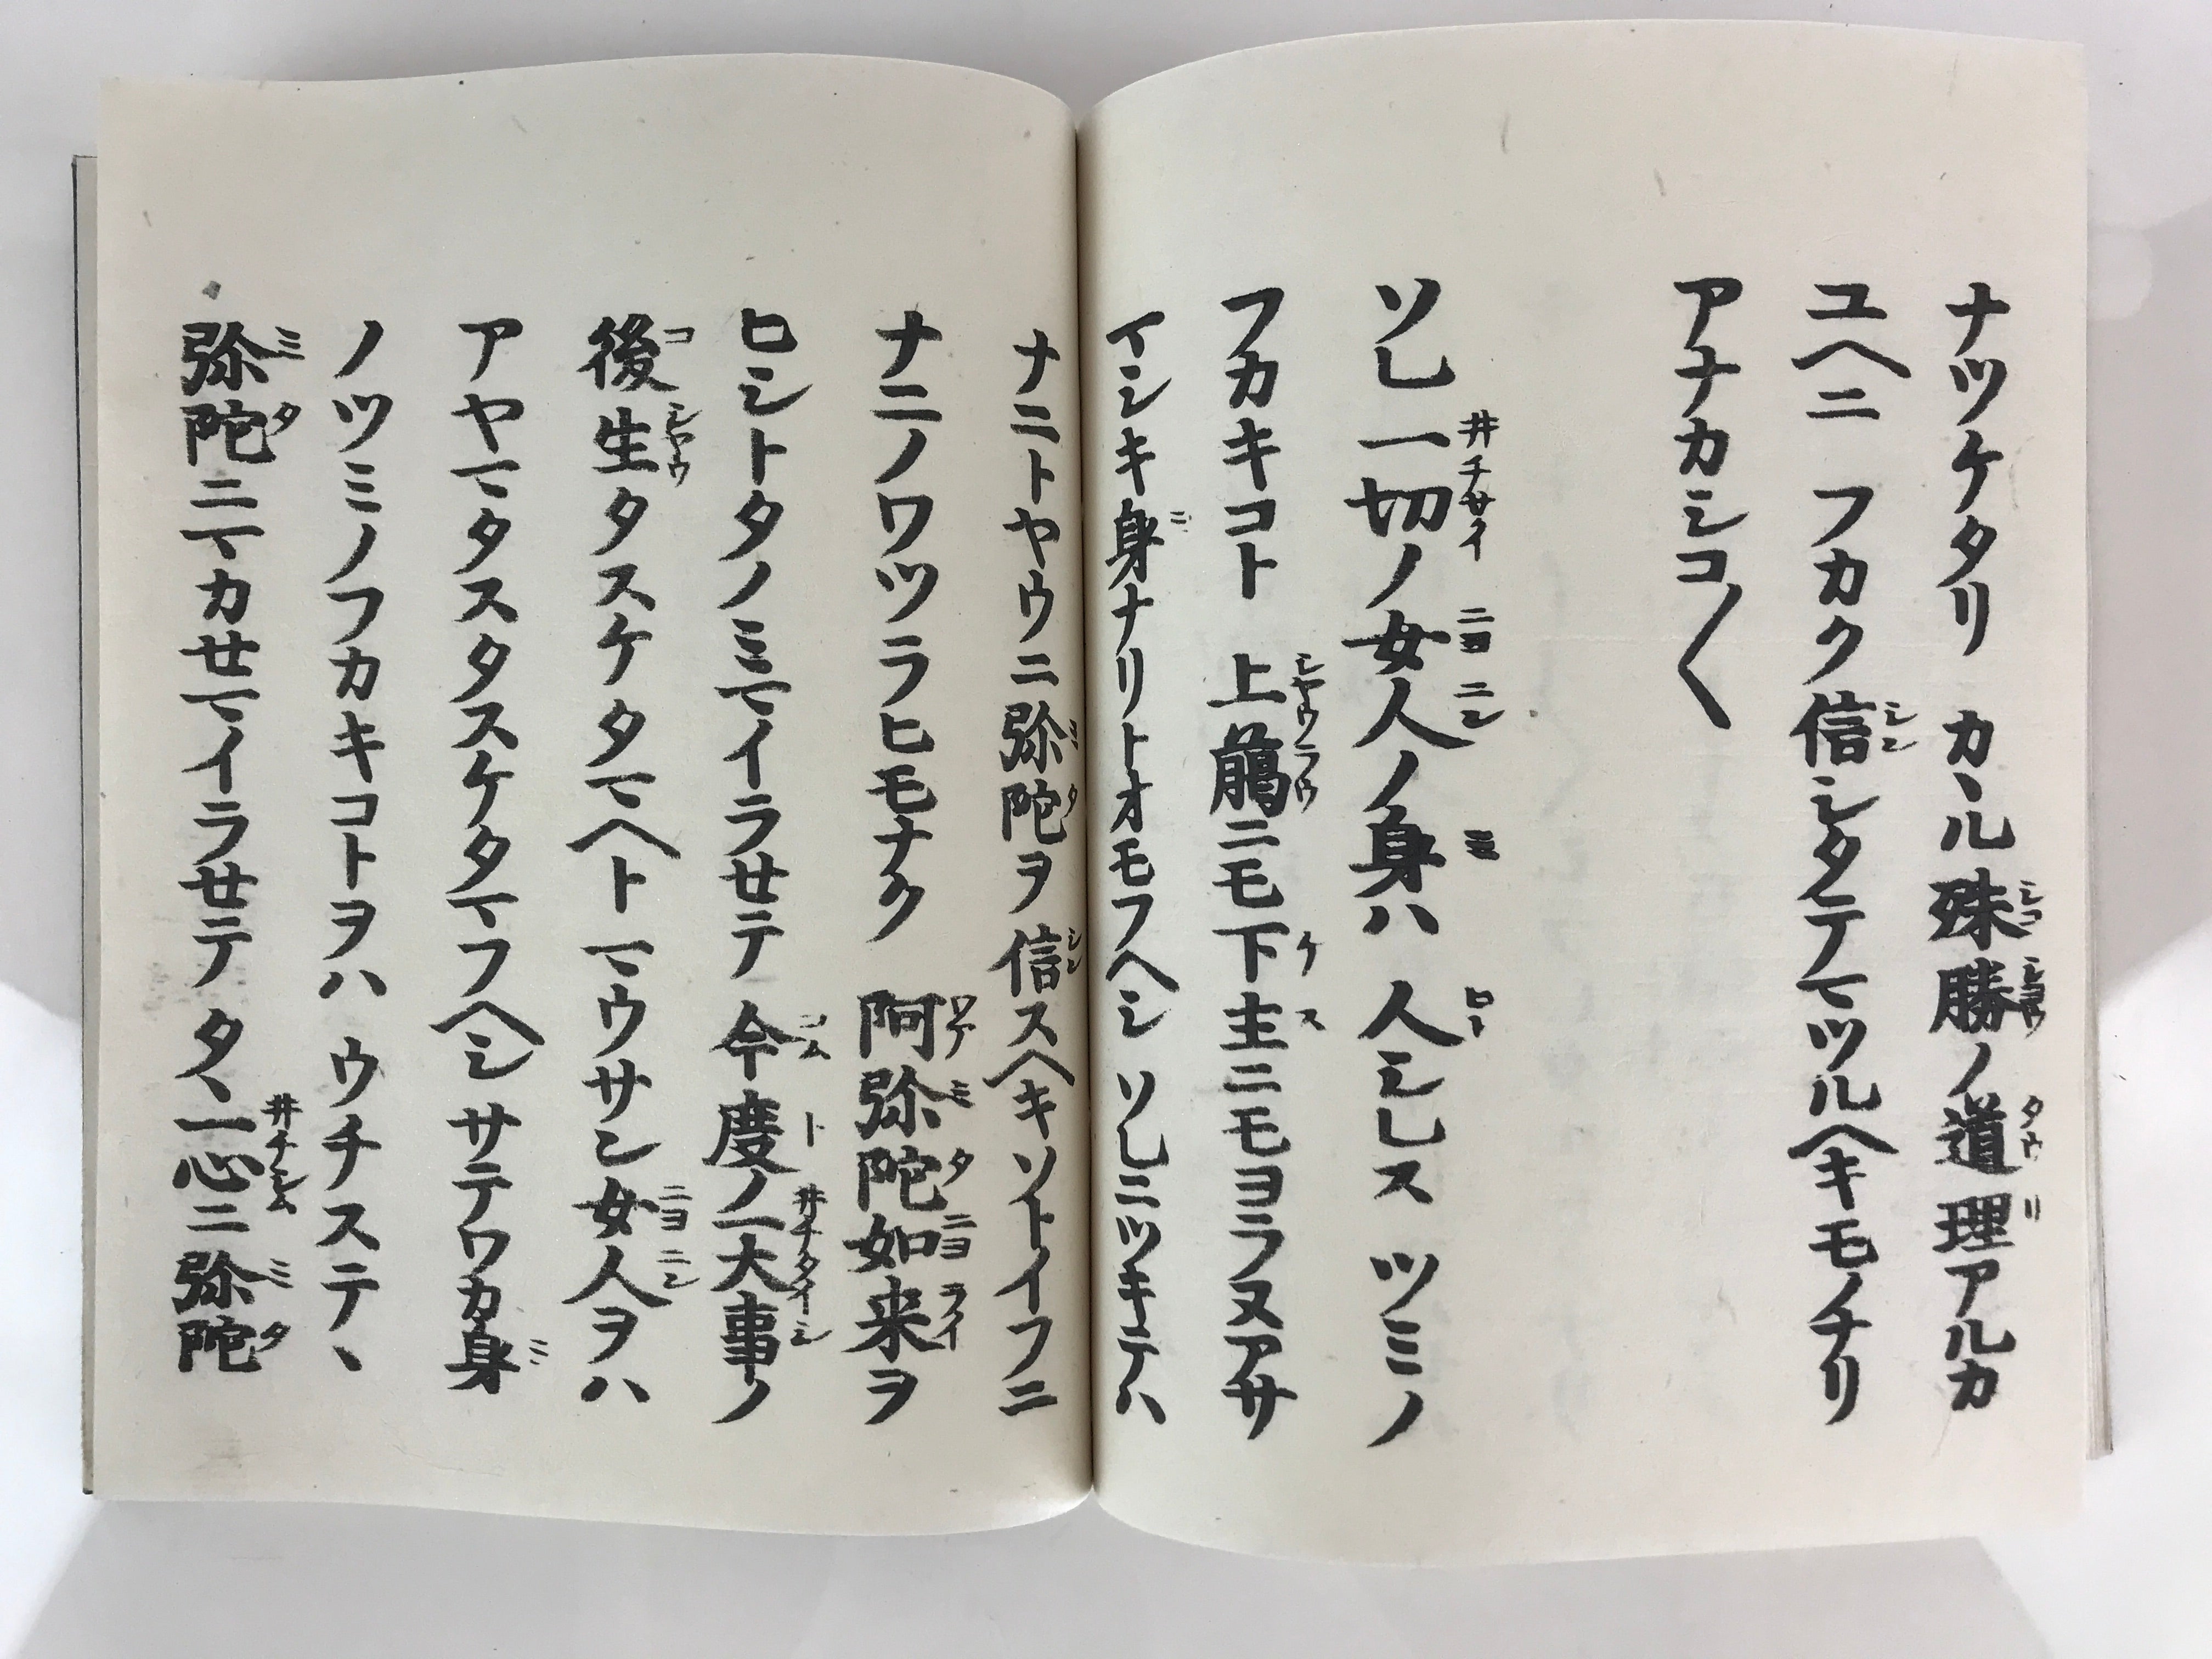 ナツケタリ カヽル殊勝ノ道理アルカ
ユヘニ フカク信シタテマツルヘキモノナリ
アナカシコ〱
ソレ一切ノ女人ノ身ハ 人シレス ツミノ
フカキコト 上﨟ニモ下主ニモヨラヌアサ
マシキ身ナリトオモフヘシ ソレニツキテハ
ナニトヤウニ弥陀ヲ信スヘキソトイフニ
ナニノワツラヒモナク 阿弥陀如来ヲ
ヒシトタノミマイラセテ 今度ノ一大事ノ
後生タスケタマヘト マウサン女人ヲハ
アヤマタスタスケタマフヘシ サテワカ身
ノツミノフカキコトヲハ ウチステヽ
弥陀ニマカセマイラセテ タヽ一心ニ弥陀